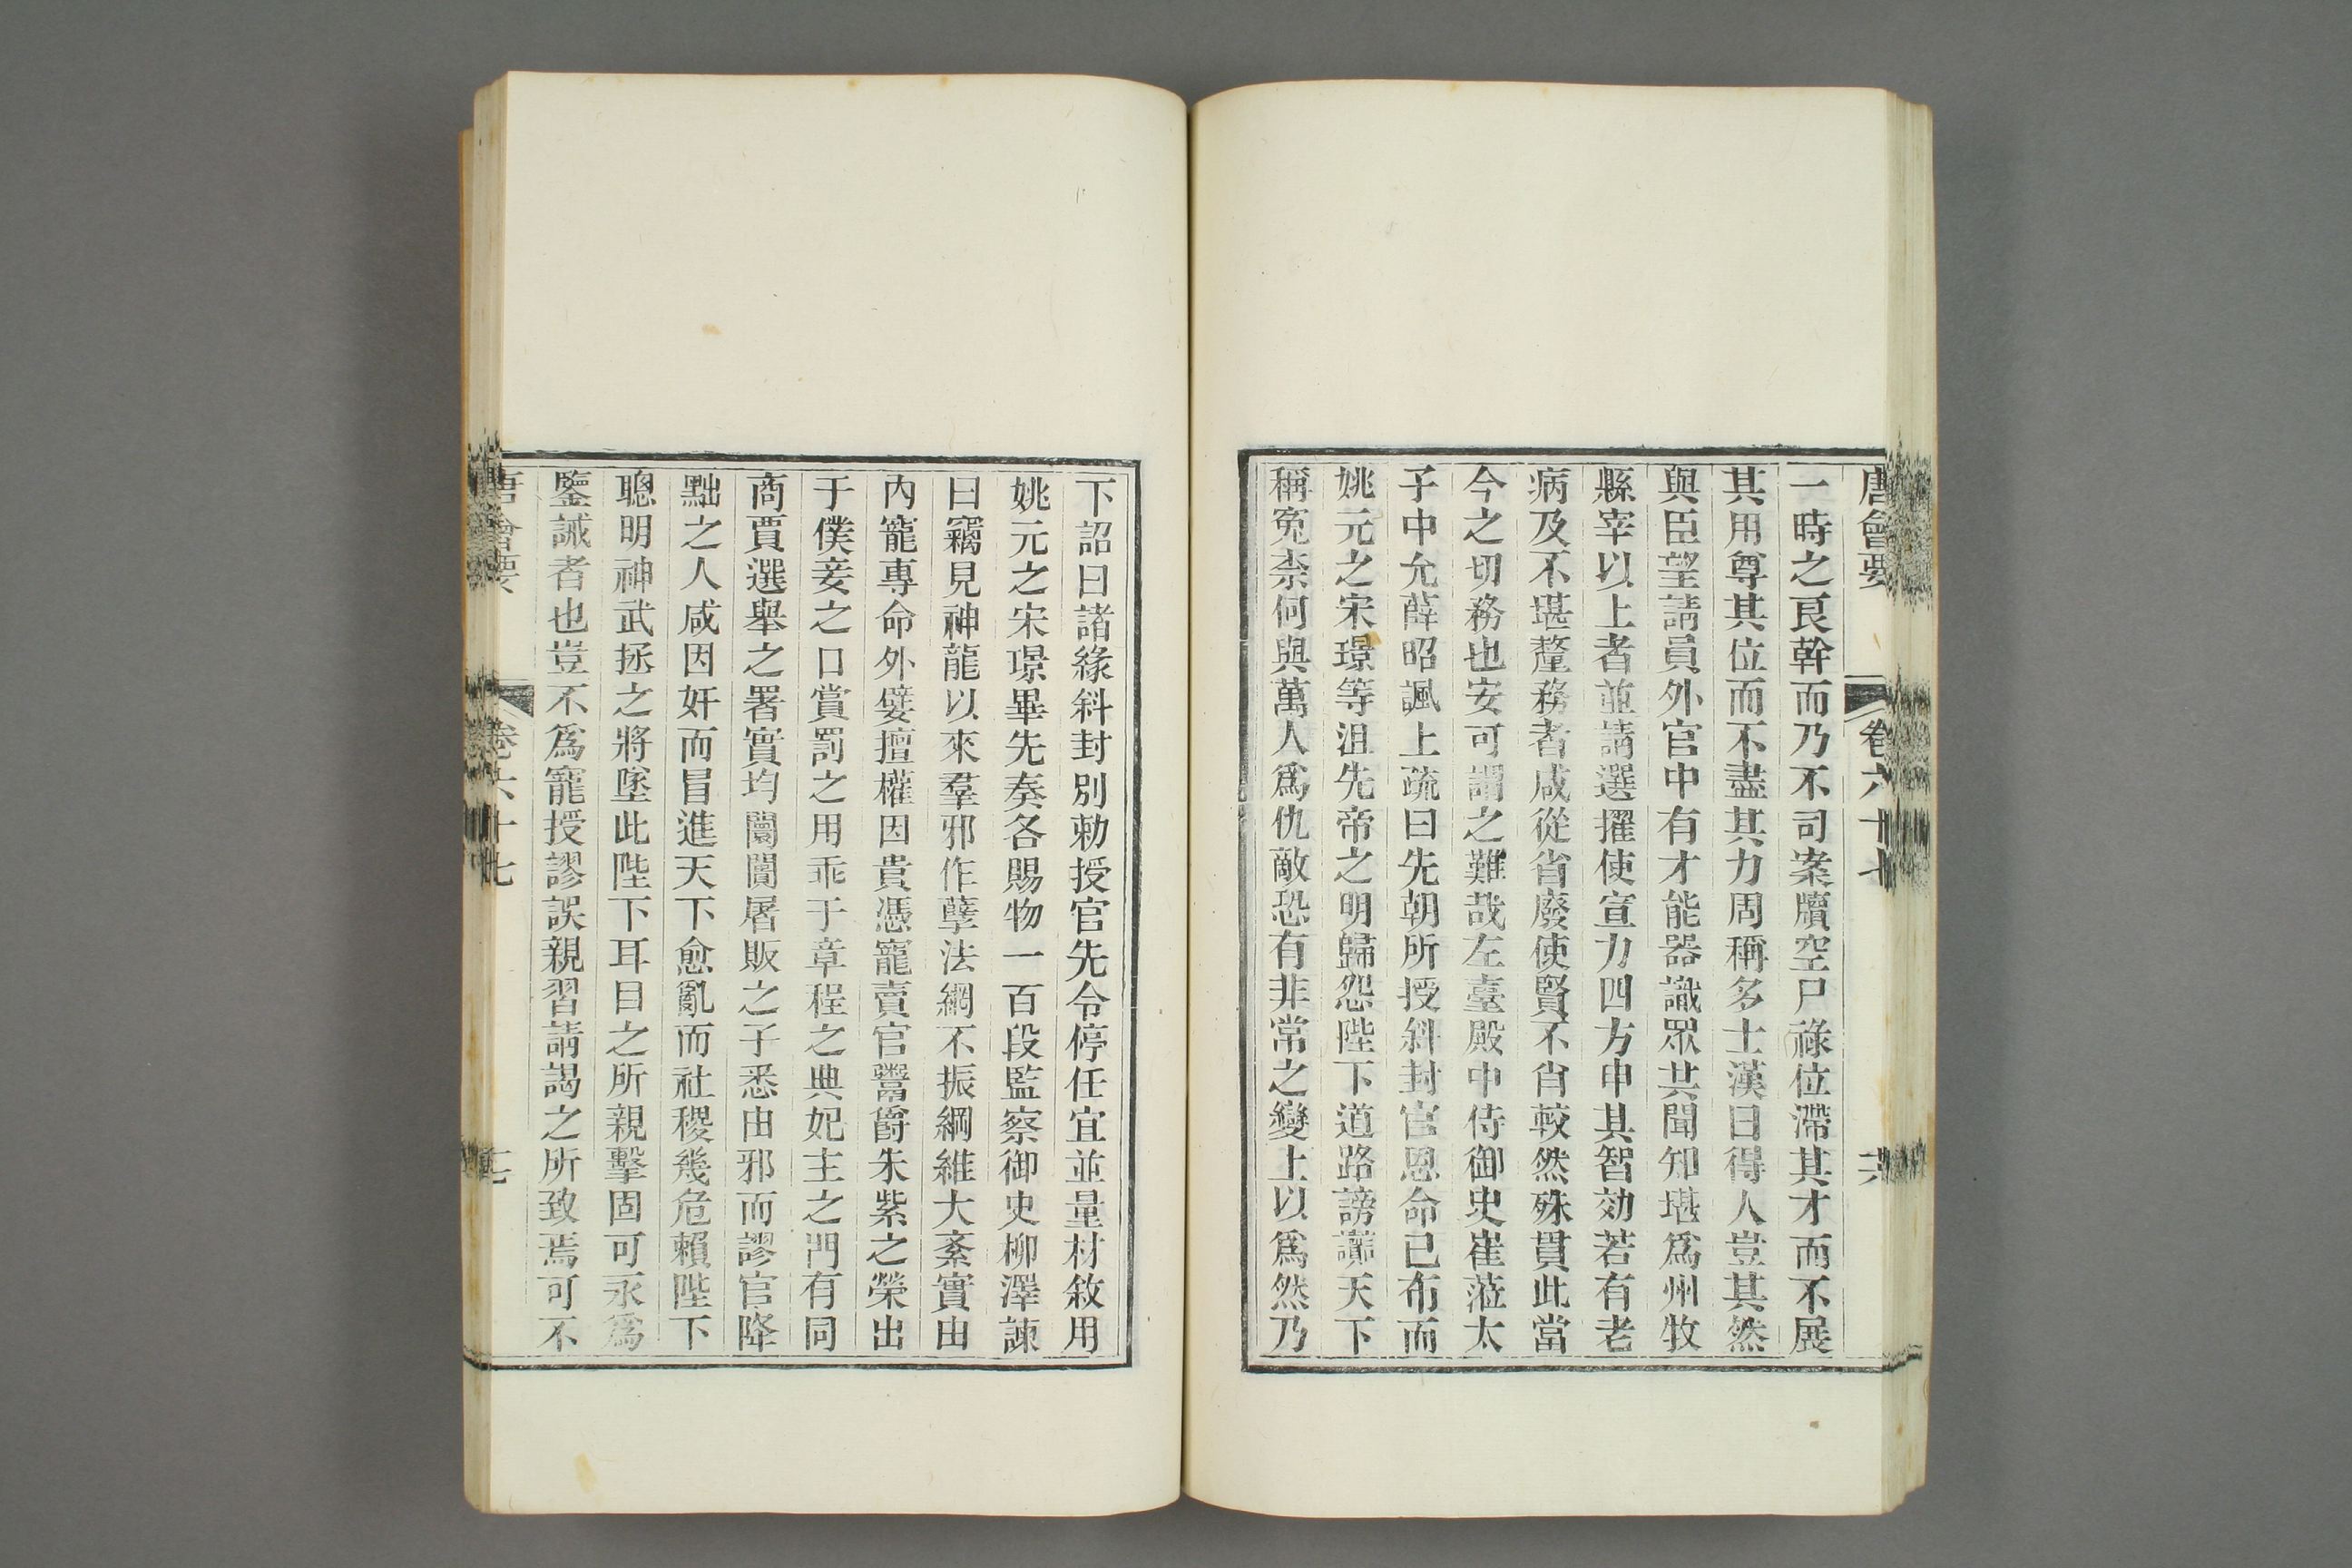 唐會要 卷六十七 十六
一時之良幹而乃不司案牘空尸祿位滯其才而不展
其用尊其位而不盡其力周稱多士漢曰得人豈其然
與臣望請員外官中有才能器識眾共聞知堪爲州牧
縣宰以上者並請選擢使宣力四方申其智効若有老
病及不堪釐務者咸從省廢使賢不肖較然殊貫此當
今之切務也安可謂之難哉左臺殿中侍御史崔蒞太
子中允薛昭諷上疏曰先朝所授斜封官恩命已布而
姚元之宋璟等沮先帝之明歸怨陛下道路謗讟天下
稱冤柰何與萬人爲仇敵恐有非常之變上以爲然乃
下詔曰諸緣斜封別勅授官先令停任宜並量材敘用
姚元之宋璟畢先奏各賜物一百段監察御史柳澤諫
曰竊見神龍以來羣邪作孽法網不振綱維大紊實由
內寵專命外嬖擅權因貴憑寵賣官鬻爵朱紫之榮出
于僕妾之口賞罰之用乖于章程之典妃主之門有同
商賈選舉之署實均闤闠屠販之子悉由邪而謬官降
黜之人咸因奸而冒進天下愈亂而社稷幾危賴陛下
聰明神武拯之將墜此陛下耳目之所親擊固可永爲
鑒誡者也豈不爲寵授謬誤親習請謁之所致焉可不
唐會要 卷六十七